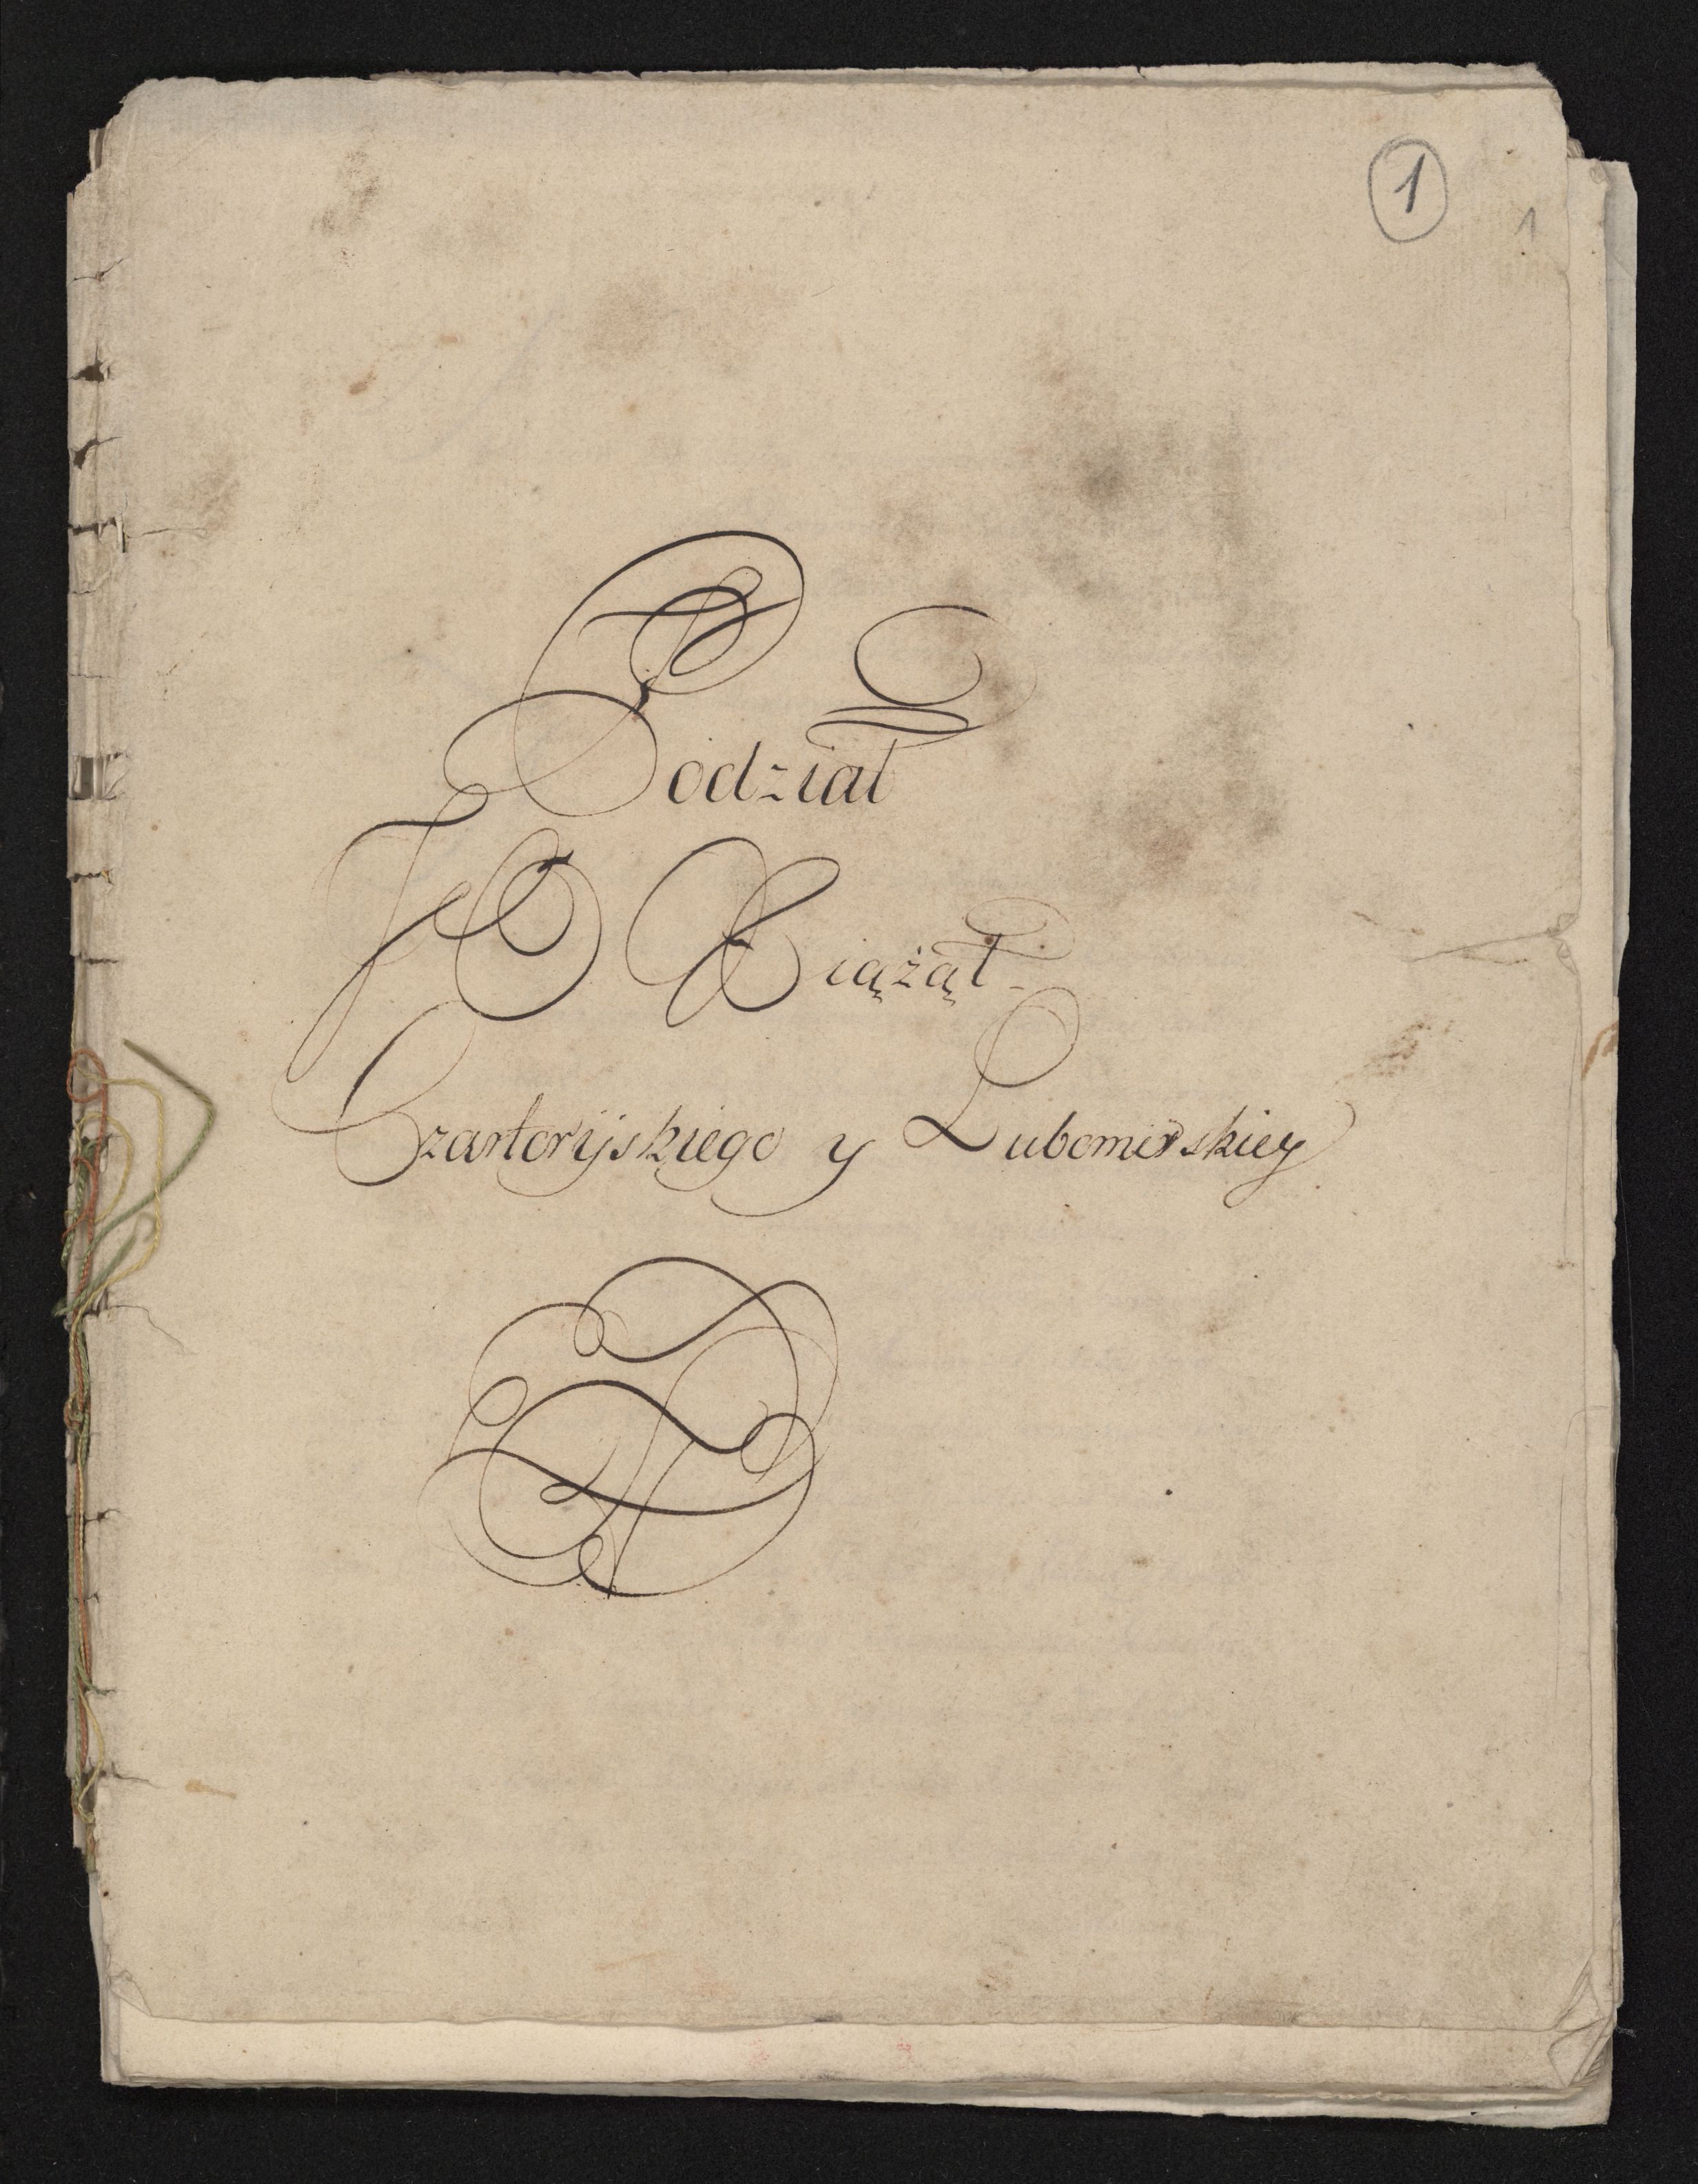 1
1
Podział
JO Xiążąt
Czartoryjskiego y Lubomirskiey